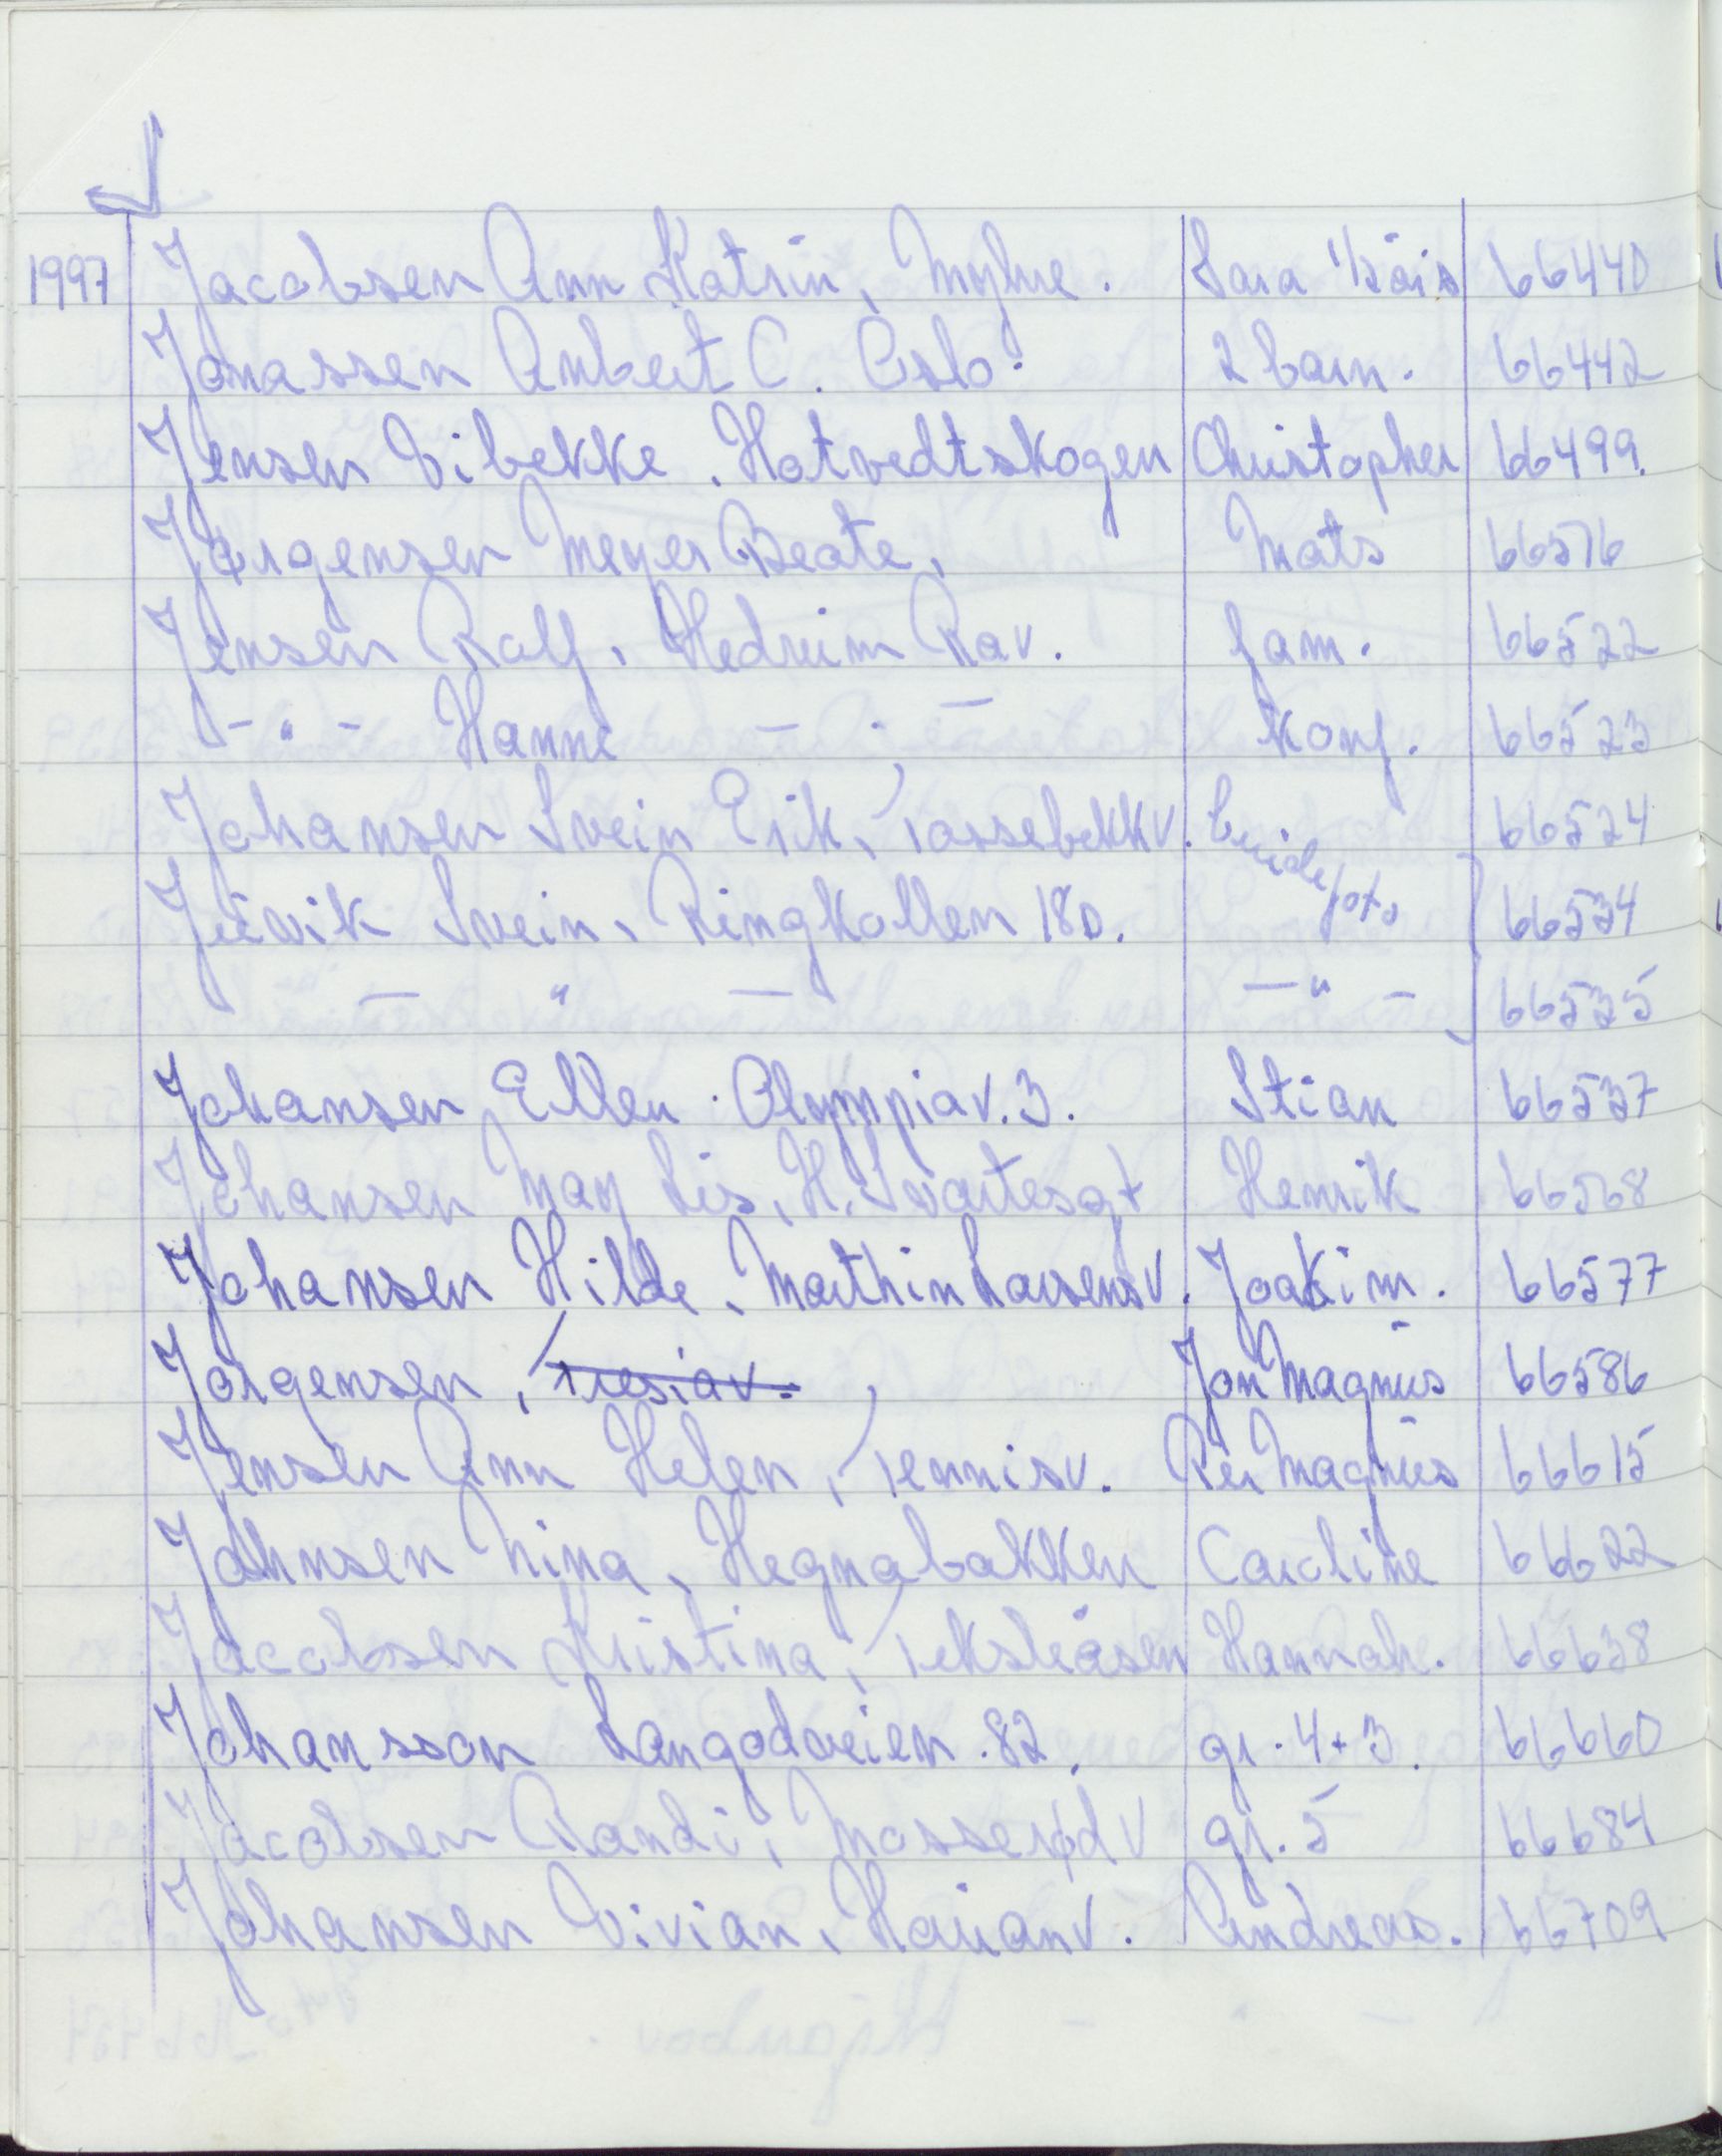 J
1997 Jacobsen Ann Katrin, Myhre. Sara 1/2 års 66440
Jonassen Anbert C. Oslo. 2 barn. 66442
Jensen Vibekke. Hotvedtskogen Christopher 66499.
Jørgensen Meyer Beate, Mats 66516
Jensen Rolf, Hedrum Rav. fam. 66522
- " - Hanne - . - konf. 66523
Johansen Svein Erik, Tossebekkv. brudefoto 66524
Juvik Svein, Ringkollen 18D. 66534
- " - - " - 66535
Johansen Ellen. Olympiav. 3. Stian 66537
Johansen May Lis, H. Svartesgt Henrik 66568
Johansen Hilde, Marthin Larsensv. Joakim. 66577
Jørgensen, Tresiav. Jon Magnus 66586
Jensen Ann Helen, Tennisv. Per Magnus 66615
Johnsen Nina, Hegnabakken Caroline 66622
Jacobsen Kristina, Teksleåsen Hannah. 66638
Johansson Langodveien. 82. gr. 4+3. 66660
Jacobsen Randi, Mosserødv gr. 5 66684
Johansen Vivian, Hauanv. Andreas. 66709